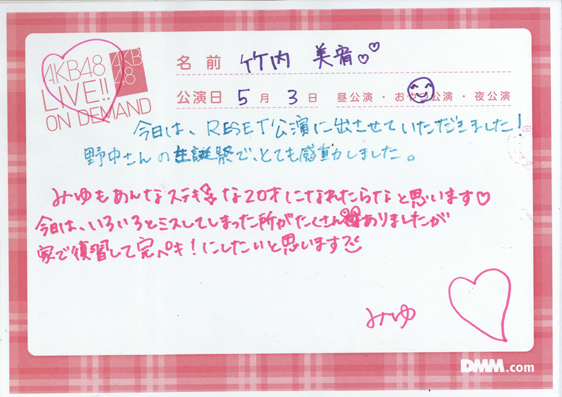 AKB48
LIVE!!
ON DEMAND
AKB
48
名前 竹内 美宥
公演日 5月3日 昼公演・おやつ公演・夜公演
今日は、RESET公演に出させていただきました!
野中さんの生誕祭で、とても感動しました。
みゆもあんなステキな20才になれたらなと思います♡
今日は、いろいろとミスしてしまった所がたくさんありましたが
家で復習して完ペキ!にしたいと思います
みゆ
DMM.com